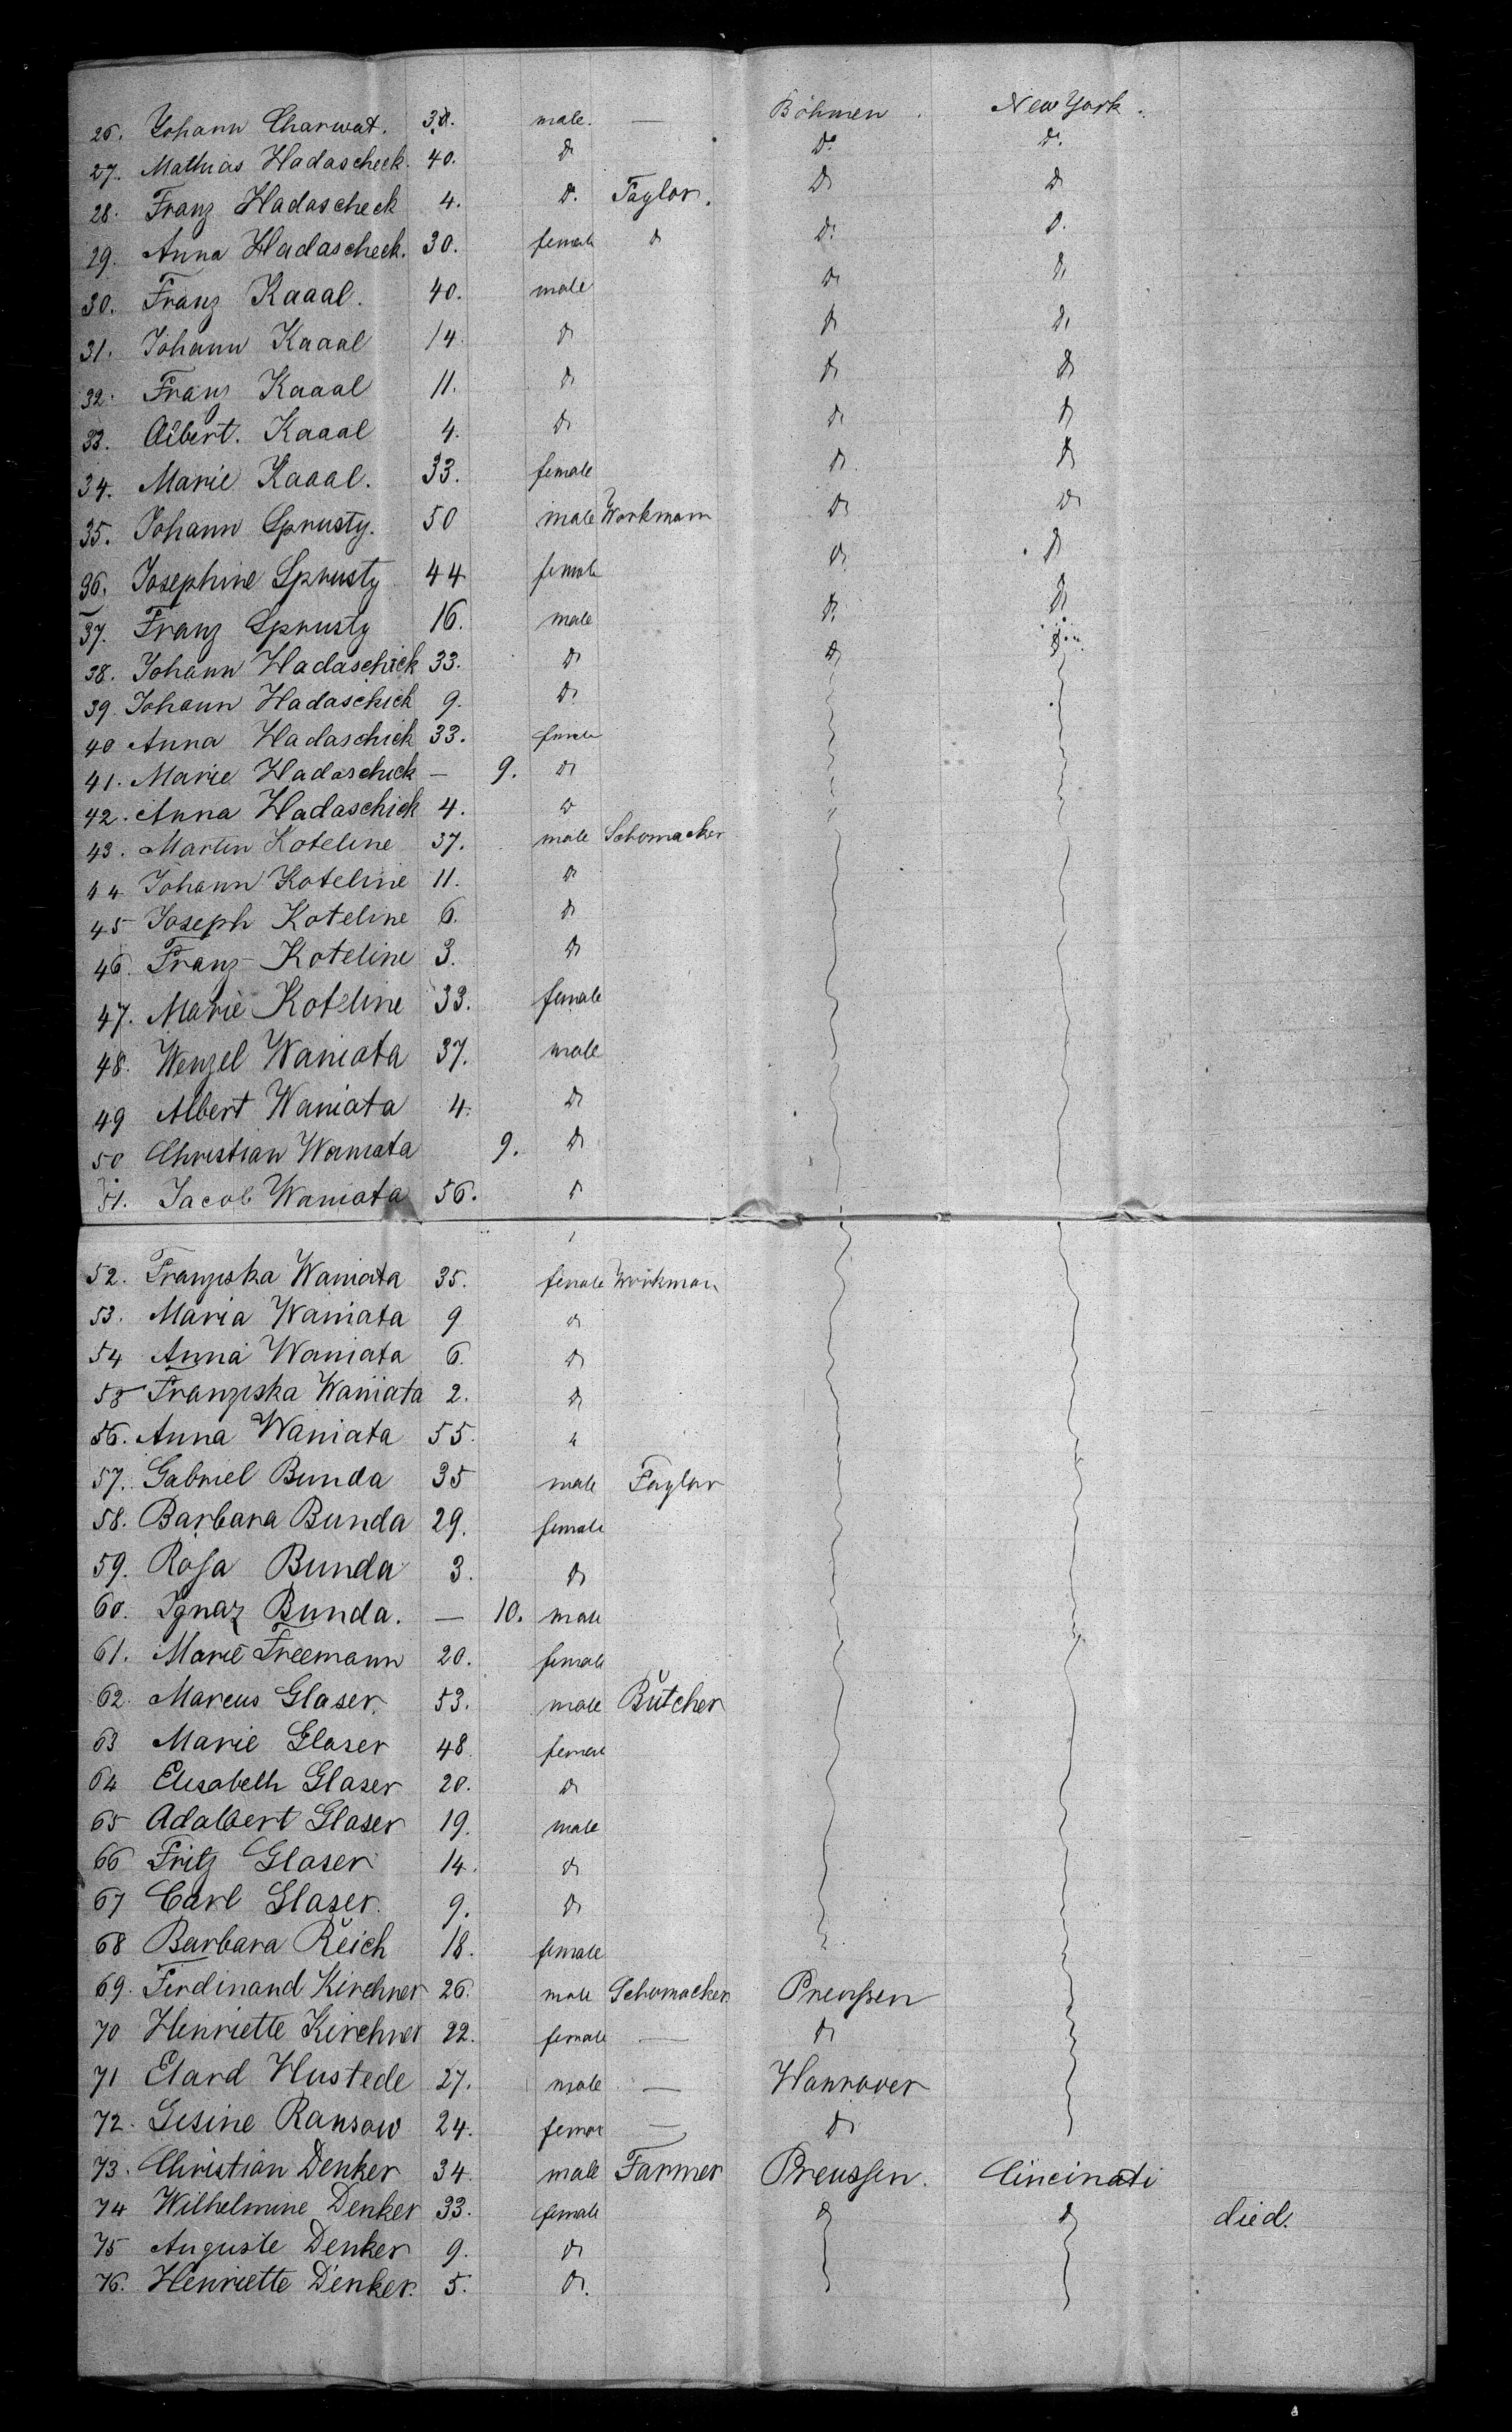 26. Johann Charwat. 30. male. — Böhmen. New York.
27. Mathias Hadascheck. 40. do do do.
28. Franz Hadascheck 4. do. Taylor. do do
29. Anna Hadascheck. 30. female do do. do.
30. Franz Kaaal. 40. male do do
31. Johann Kaaal 14. do do do
32. Franz Kaaal 11. do do do
33. Albert. Kaaal 4. do do do
34. Marie Kaaal. 33. female do do
35. Johann Sprusty. 50 male Workmann do do
36. Josephine Sprusty 44 female do do
37. Franz Sprusty 16. male do. do
38. Johann Hadaschick 33. do do do
39. Johann Hadaschick 9. do
40 Anna Hadaschick 33. female
41. Marie Hadaschick — 9. do
42. Anna Hadaschick 4. do
43. Martin Koteline 37. male Schomacker
44 Johann Koteline 11. do
45 Joseph Koteline 6. do
46. Franz Koteline 3. do
47. Marie Koteline 33. female
48. Wenzel Waniata 37. male
49 Albert Waniata 4. do
50 Christian Waniata 9. do
51. Jacob Waniata 56. do
52. Franziska Waniata 35. female Workman
53. Maria Waniata 9 do
54 Anna Waniata 6. do
55 Franziska Waniata 2. do
56. Anna Waniata 55. do
57. Gabriel Bunda 35 male Taylor
58. Barbara Bunda 29. female
59. Rosa Bunda 3. do
60. Ignaz Bunda. — 10. male
61. Marie Freemann 20. female
62. Marcus Glaser. 53. male Butcher
63 Marie Glaser 48. female
64 Elisabeth Glaser 20. do
65 Adalbert Glaser 19. male
66 Fritz Glaser 14. do
67 Carl Glaser. 9. do
68 Barbara Reich 18. female
69. Ferdinand Kirchner 26. male Schomacker Preussen
70 Henriette Kirchner 22. female — do
71 Elard Hustede 27. male — Hannover
72. Gesine Ransow 24. female — do
73. Christian Denker 34. male Farmer Preussen. Cincinati
74 Wilhelmine Denker 33. female do do died.
75 Auguste Denker 9. do
76. Henriette Denker. 5. do.